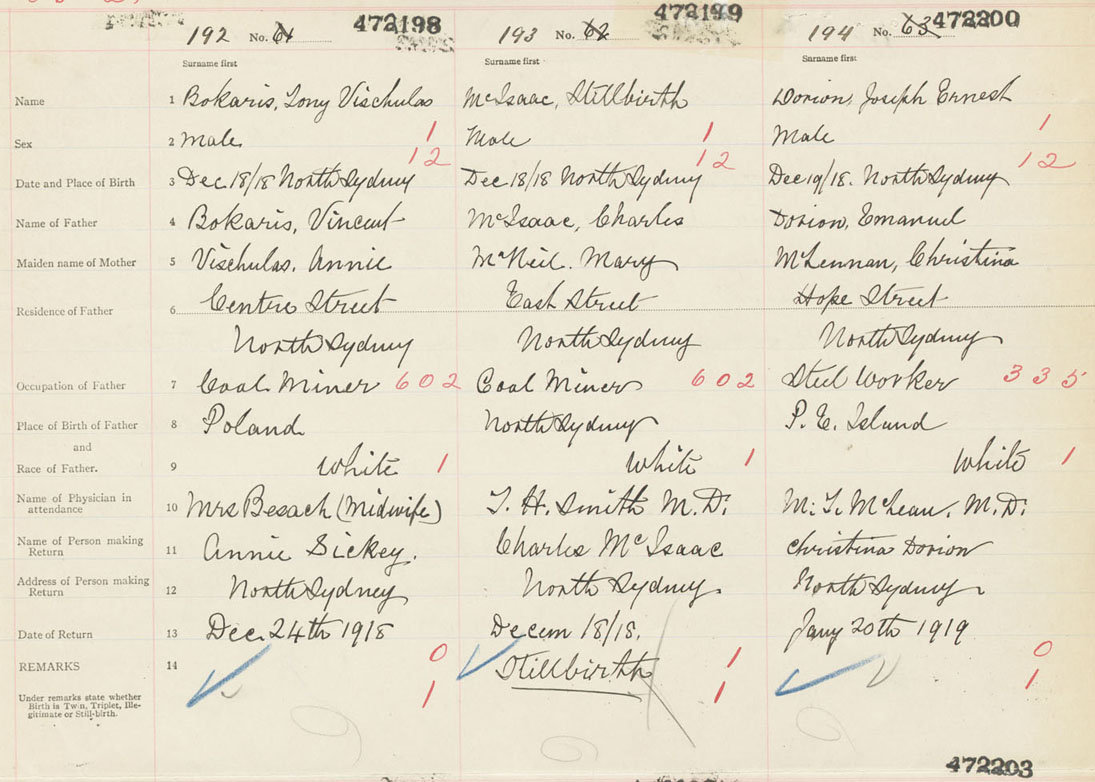 192 No. 61 472198
193 No. 62 472199
194 No. 63 472200
Surname first Surname first Surname first
Name 1 Bokaris, Tony Vischulas McIsaac, Stillbirth Dorion, Joseph Ernest
Sex 2 Male 1 Male 1 Male 1
12 12 12
Date and Place of Birth 3 Dec 18/18 North Sydney Dec 18/18 North Sydney Dec 19/18. North Sydney
Name of Father 4 Bokaris, Vincent McIsaac, Charles Dorion, Emanuel
Maiden name of Mother 5 Vischulas, Annie McNeil. Mary McLennan, Christina
Residence of Father 6 Centre Street East Street Hope Street
North Sydney North Sydney North Sydney
Occupation of Father 7 Coal Miner 602 Coal Miner 602 Steel Worker 335
Place of Birth of Father 8 Poland North Sydney P. E. Island
and
Race of Father. 9 White 1 White 1 White 1
Name of Physician in attendance 10 Mrs Besach (Midwife) T. H. Smith M.D. M. T. McLean. M.D.
Name of Person making Return 11 Annie Sickey. Charles McIsaac Christina Dorion
Address of Person making Return 12 North Sydney North Sydney. North Sydney.
Date of Return 13 Dec. 24th 1918 Decem 18/18. Jany 20th 1919
REMARKS 14 0 Stillbirth 1 0
Under remarks state whether Birth is Twin, Triplet, Illegitimate or Still-birth. 1 1 1
472203